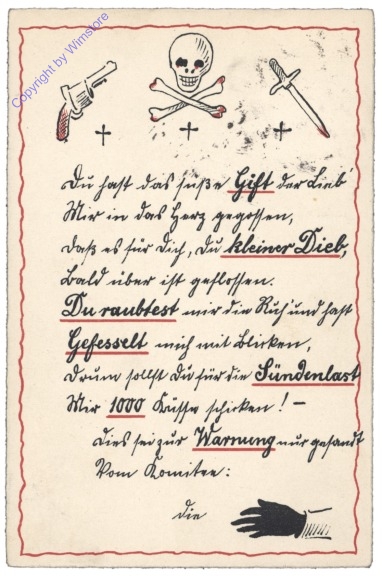 Copyright by Wimstore
Du hast das süße Gift der Lieb'
Mir in das Herz gegossen,
Daß es für Dich, Du kleiner Dieb,
Bald über ist geflossen.
Du raubtest mir die Ruh' und hast
Gefesselt mich mit Blicken,
Drum sollst Du für die Sündenlast
Mir 1000 Küsse schicken! –
Dies sei zur Warnung nur gesandt
Vom Komitee:
die